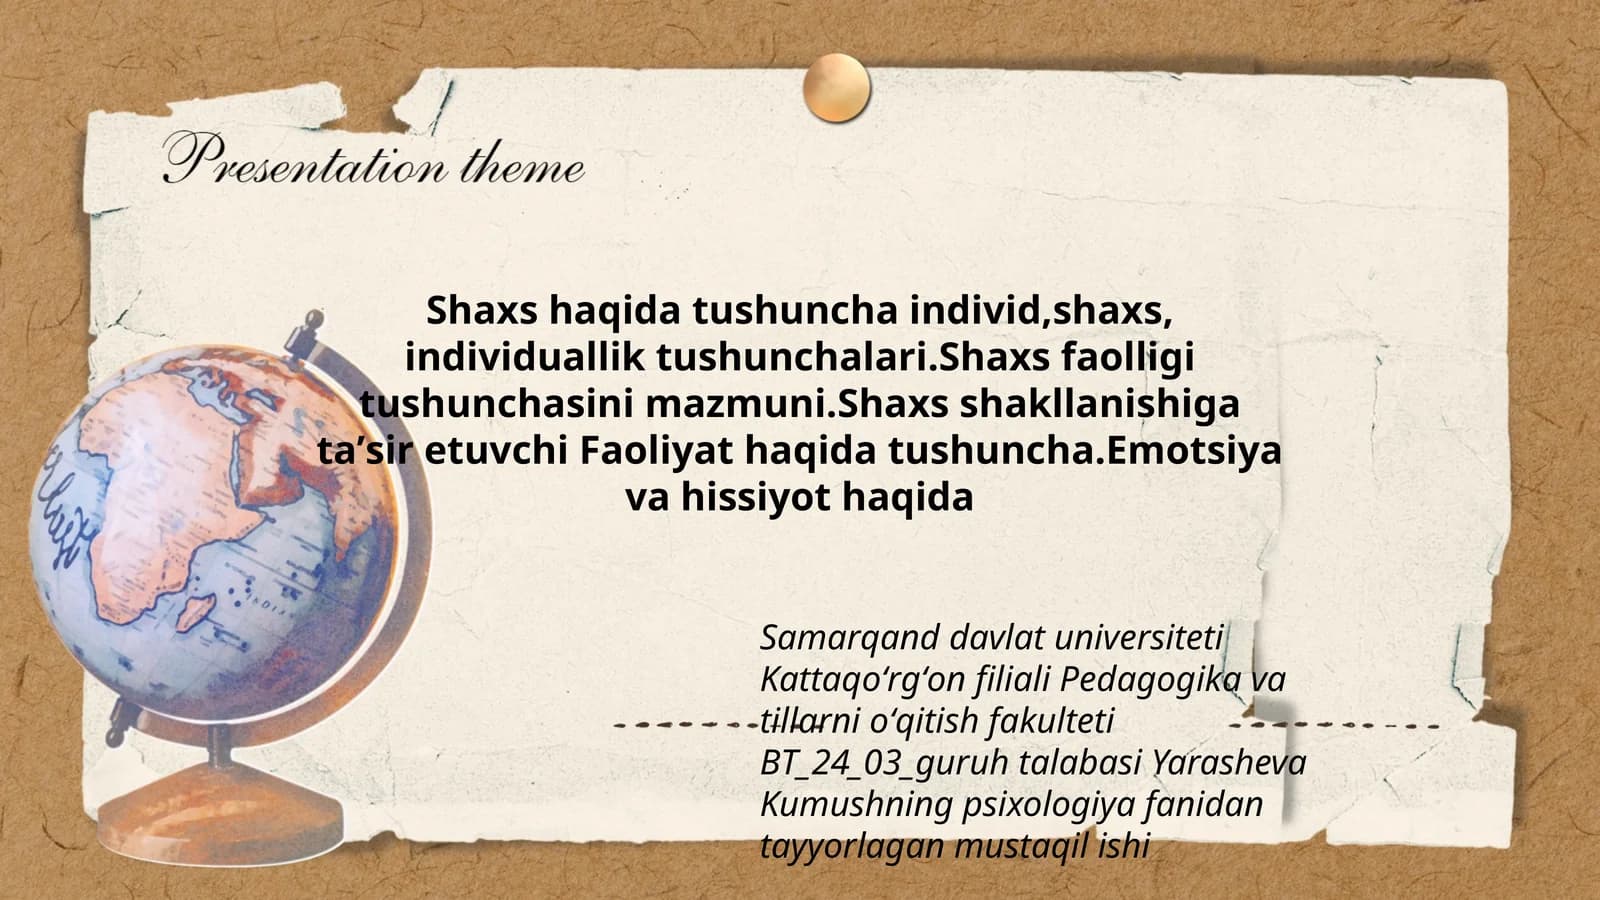 Presentation theme
Shaxs haqida tushuncha individ,shaxs,
individuallik tushunchalari.Shaxs faolligi
tushunchasini mazmuni.Shaxs shakllanishiga
ta’sir etuvchi Faoliyat haqida tushuncha.Emotsiya
va hissiyot haqida
Samarqand davlat universiteti
Kattaqo‘rg‘on filiali Pedagogika va
tillarni o‘qitish fakulteti
BT_24_03_guruh talabasi Yarasheva
Kumushning psixologiya fanidan
tayyorlagan mustaqil ishi